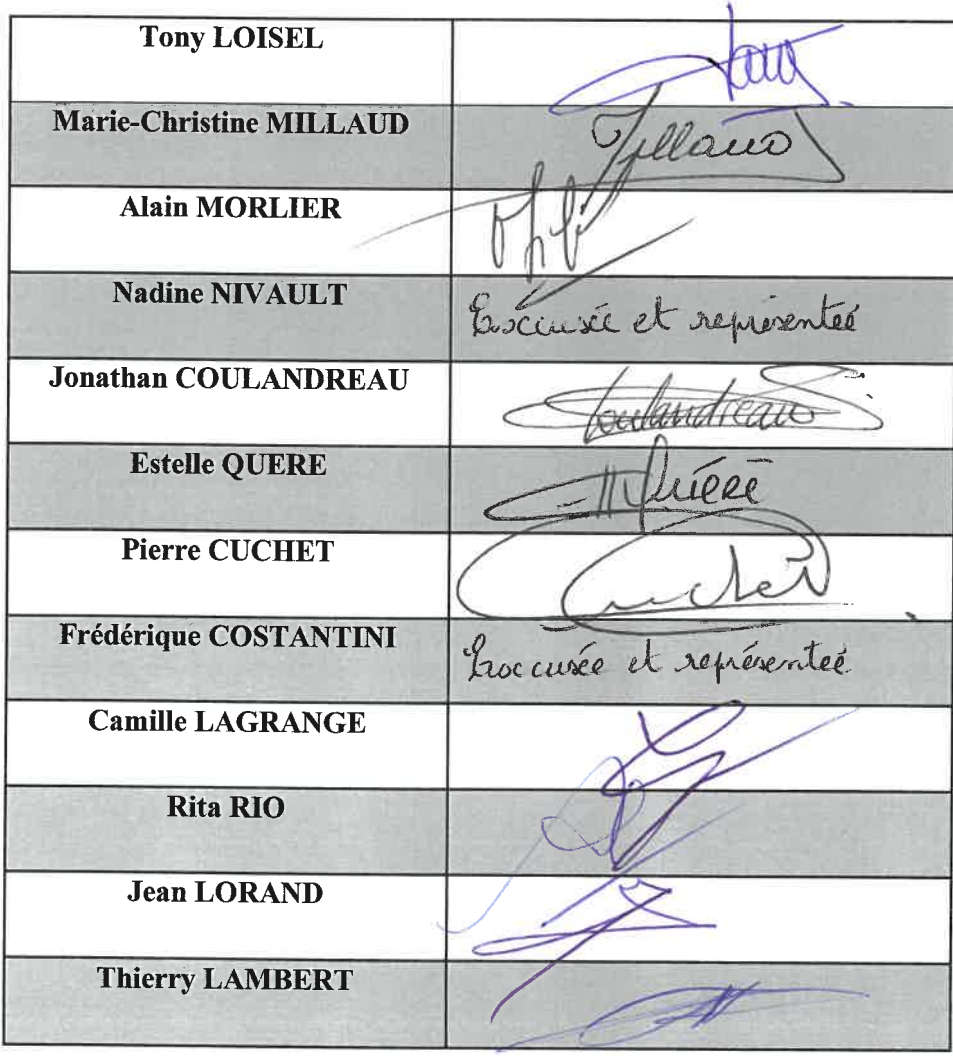 Tony LOISEL
Marie-Christine MILLAUD
Millaud
Alain MORLIER
Nadine NIVAULT
Excusée et représenteé
Jonathan COULANDREAU
Coulandreau
Estelle QUERE
Quéré
Pierre CUCHET
Cuchet
Frédérique COSTANTINI
Excusée et représenteé
Camille LAGRANGE
Rita RIO
Jean LORAND
Thierry LAMBERT